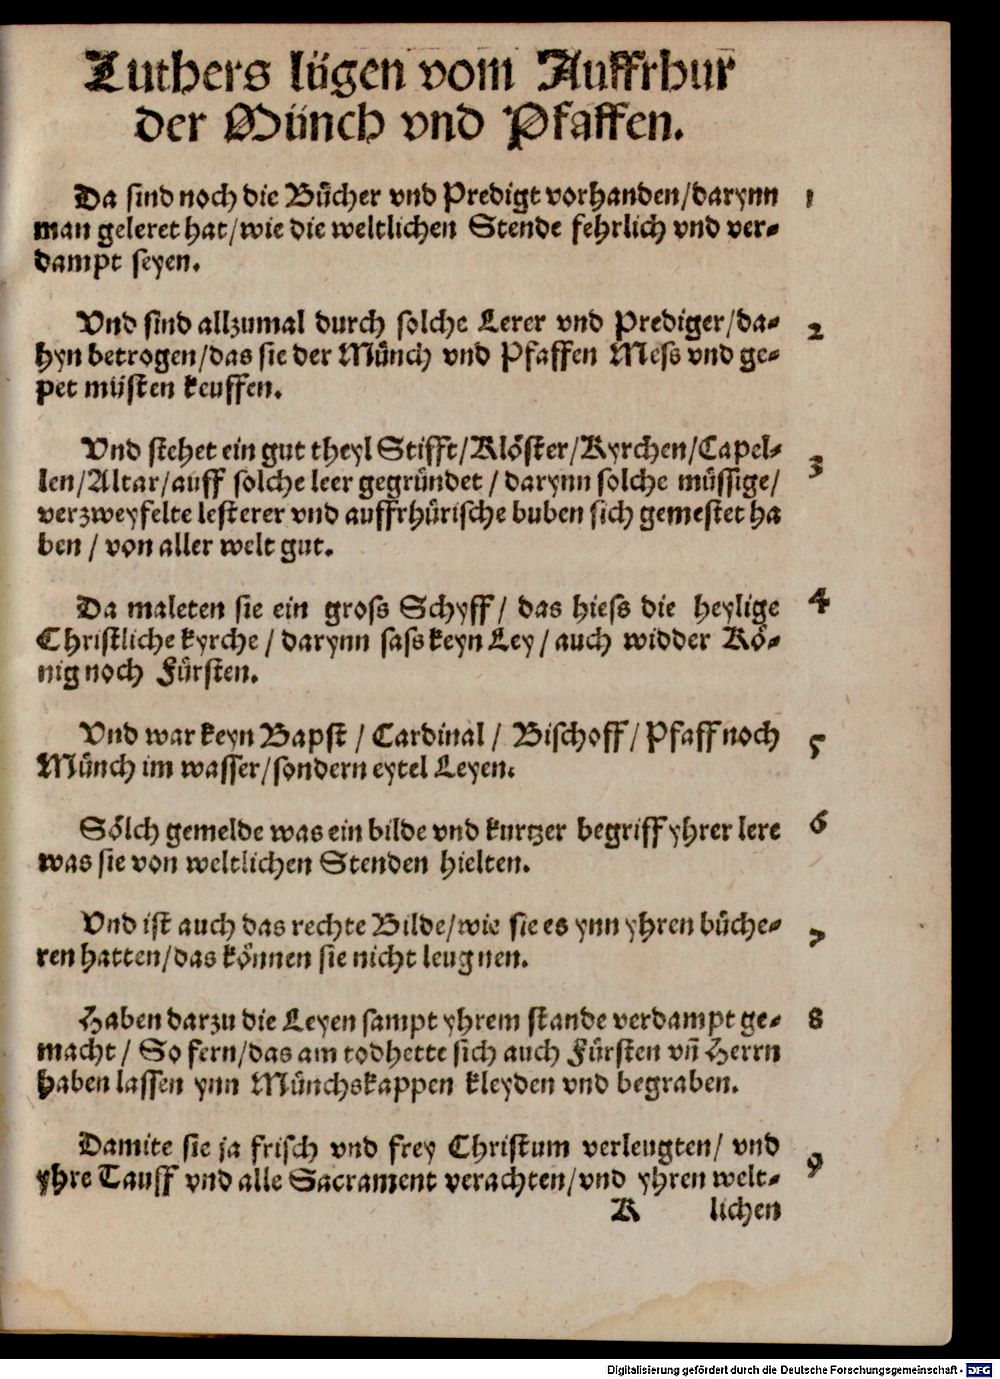 Luthers lügen vom Auffrhur
der Münch vnd Pfaffen.
Da sind noch die Bůcher vnd Predigt vorhanden/darynn 1
man geleret hat/wie die weltlichen Stende fehrlich vnd ver-
dampt seyen.
Vnd sind allzumal durch solche Lerer vnd Prediger/da- 2
hyn betrogen/das sie der Můnch vnd Pfaffen Mess vnd ge-
pet müsten keuffen.
Vnd stehet ein gut theyl Stifft/Klöster/Kyrchen/Capel- 3
len/Altar/auff solche leer gegründet / darynn solche můssige/
verzweyfelte lesterer vnd auffrhůrische buben sich gemestet ha
ben / von aller welt gut.
Da maleten sie ein gross Schyff/ das hiess die heylige 4
Christliche kyrche / darynn sass keyn Ley / auch widder Kö-
nig noch Fürsten.
Vnd war keyn Bapst / Cardinal / Bischoff / Pfaff noch 5
Münch im wasser/sondern eytel Leyen.
Sölch gemelde was ein bilde vnd kurtzer begriff yhrer lere 6
was sie von weltlichen Stenden hielten.
Vnd ist auch das rechte Bilde/wie sie es ynn yhren bůche- 7
ren hatten/das können sie nicht leugnen.
Haben darzu die Leyen sampt yhrem stande verdampt ge- 8
macht / So fern/das am todbette sich auch Fürsten vñ Herrn
haben lassen ynn Münchskappen kleyden vnd begraben.
Damite sie ja frisch vnd frey Christum verleugten/ vnd 9
yhre Tauff vnd alle Sacrament verachten/vnd yhren welt-
K lichen
Digitalisierung gefördert durch die Deutsche Forschungsgemeinschaft - DFG